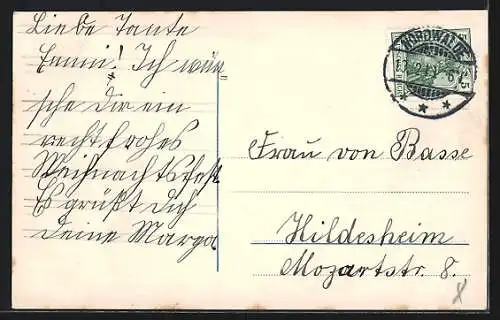 Liebe Tante
Emmi! Ich wün
sche Dir ein
recht frohes
Weihnachtsfest
Es grüßt Dich
Deine Marga
NORDWALDE
Frau von Basse
Hildesheim
Mozartstr. 8.